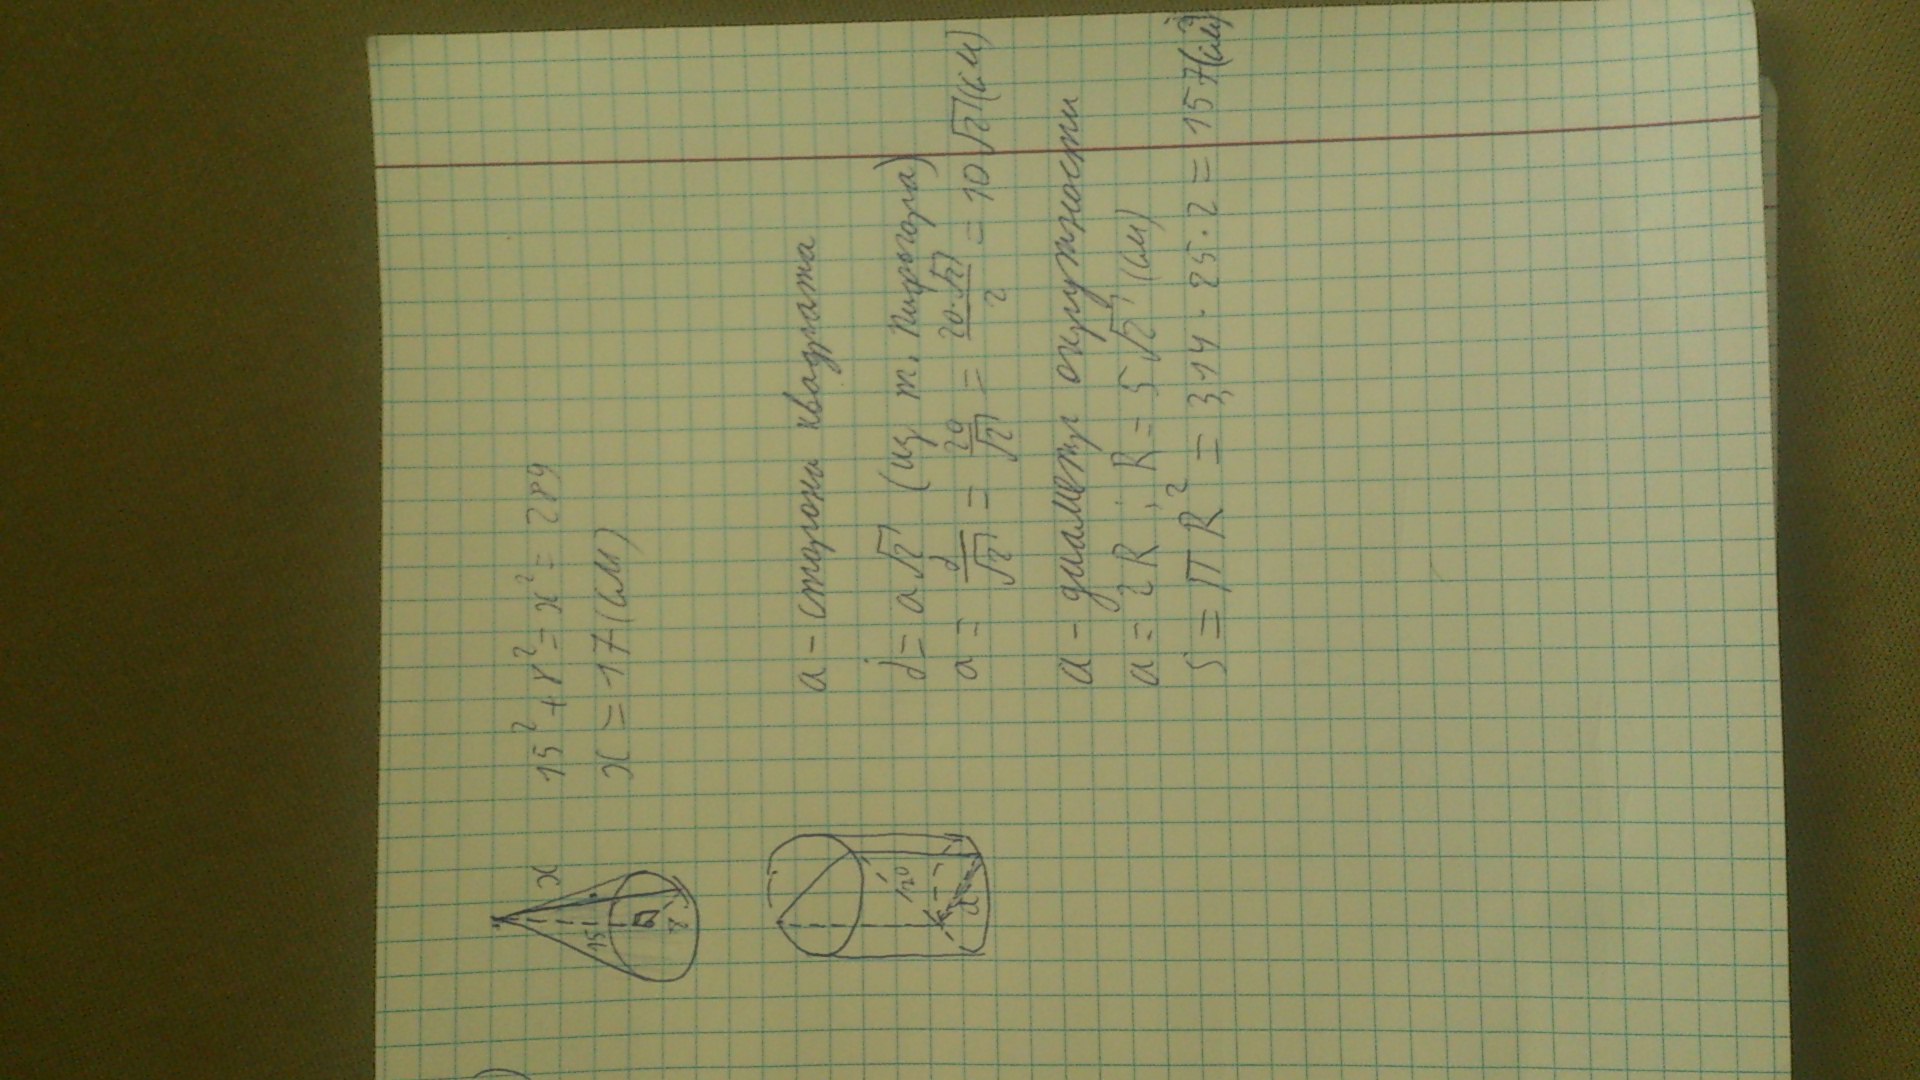 x
15
r
15² + r² = x² = 289
x = 17 (см)
20
d
a - сторона квадрата
d = a√2 (из т. Пифагора)
a = d/√2 = 20/√2 = 20·√2/2 = 10√2 (см)
a - диаметр окружности
a = 2R; R = 5√2 (см)
S = πR² = 3,14 · 25 · 2 = 157 (см²)